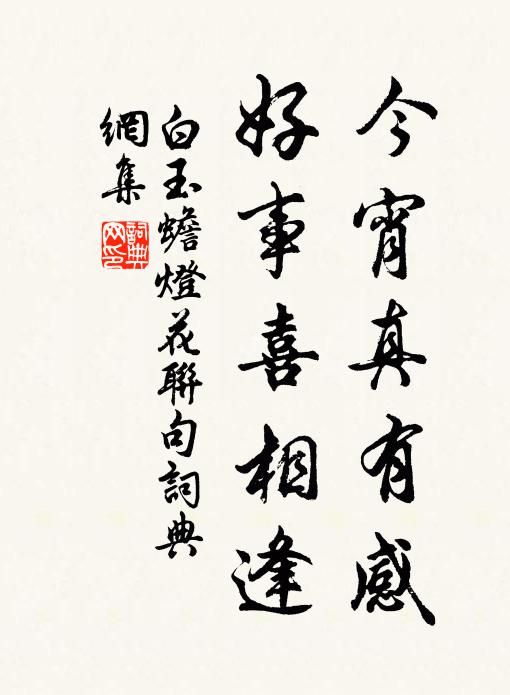 今宵真有感
好事喜相逢
白玉蟾燈花聯句詞典
網集
詞典
网印